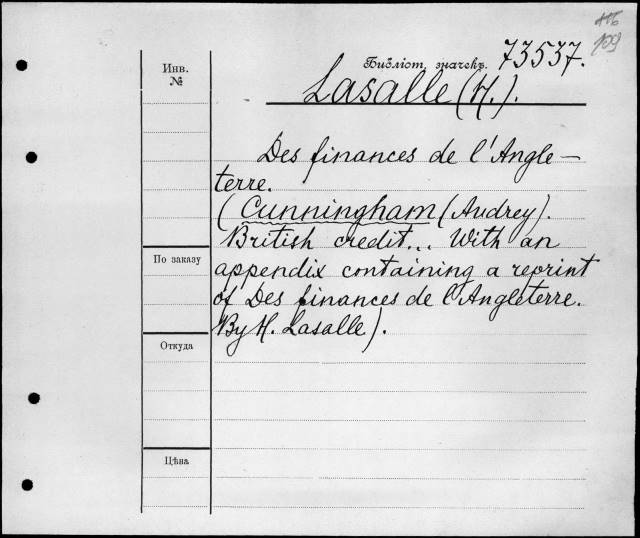 109
Инв.
№
Библіот. значекъ. 73537.
Lasalle (H.).
Des finances de l'Angle-
terre.
(Cunningham (Audrey).
British credit... With an
appendix containing a reprint
of Des finances de l'Angleterre.
By H. Lasalle).
По заказу
Откуда
Цѣна